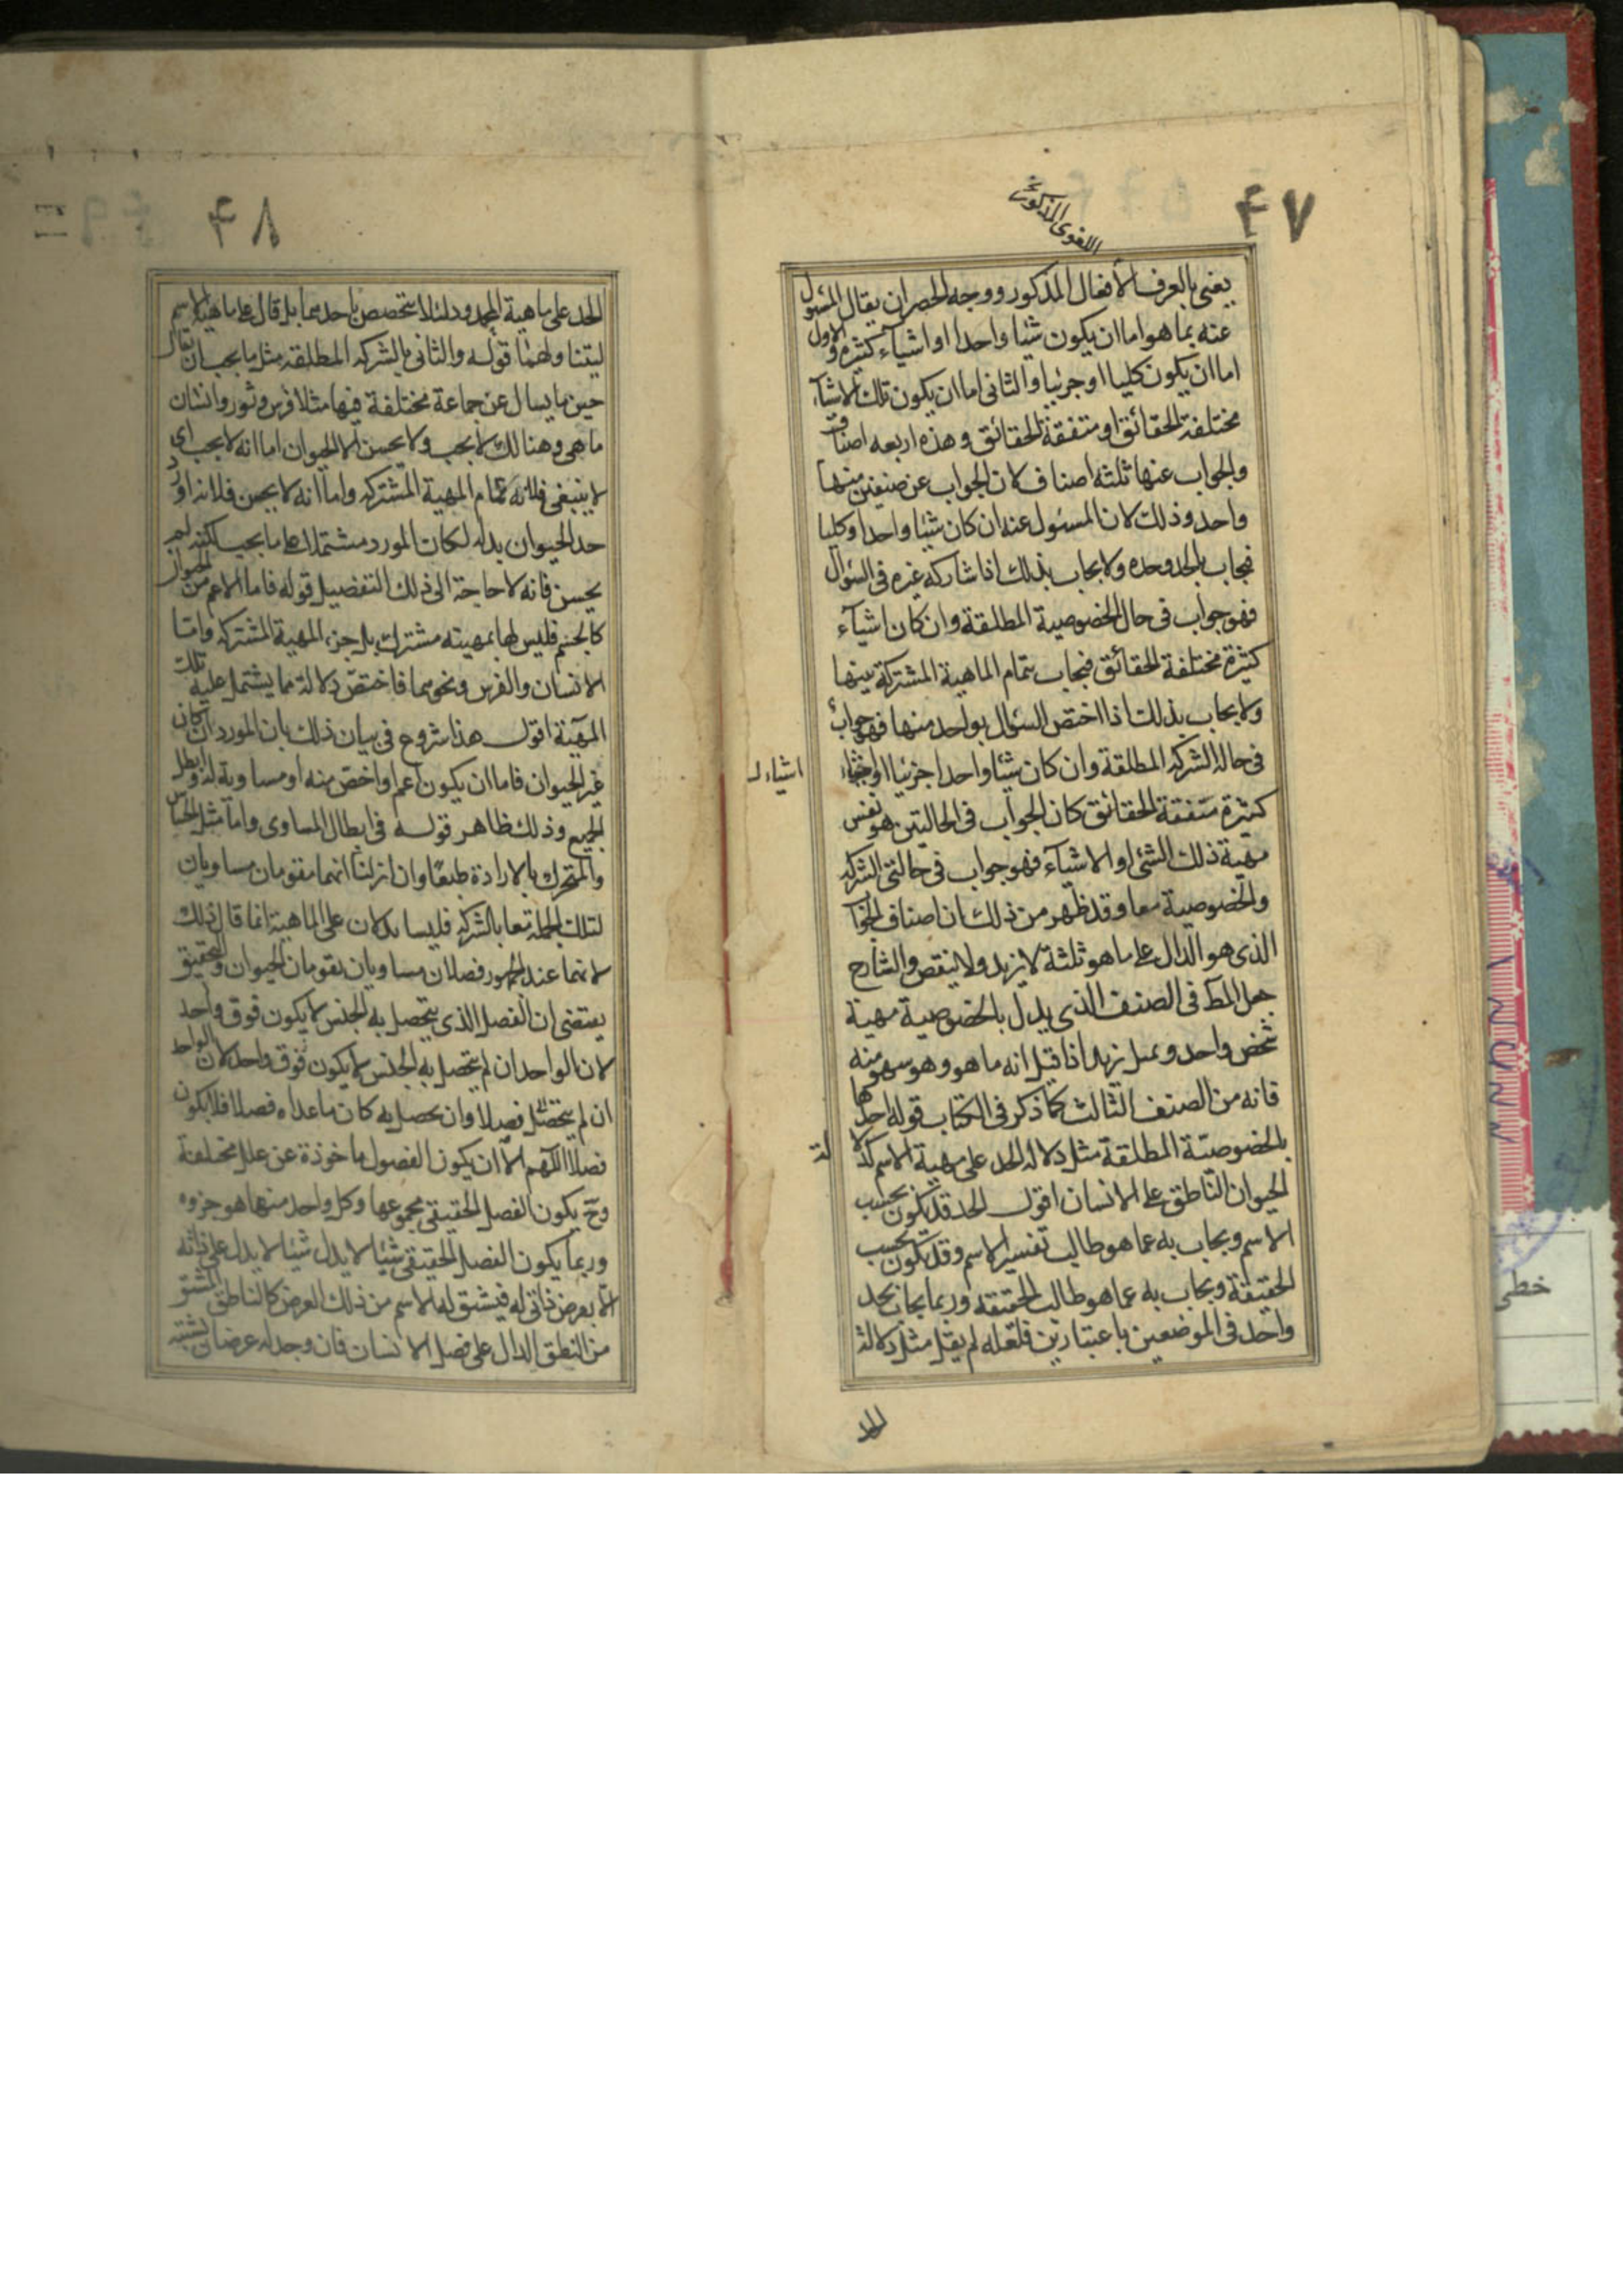 ۴۷
اللغوی المذکور
یعنی بالعرف الأفعال المذکور ووجه الحصر ان یقال المسئول
عنه بما هو اما ان یکون شیئا واحدا او اشیاء کثیره والاول
اما ان یکون کلیا او جزئیا والثانی اما ان یکون تلک الاشیاء
مختلفة الحقائق او متفقة الحقائق وهذه اربعه اصناف
والجواب عنها ثلثه اصناف لان الجواب عن صنفین منها
واحد وذلک لان المسئول عنه ان کان شیئا واحدا وکلیا
فیجاب بالحد وحده ولا یجاب بذلک اذا شارکه غیره فی السؤال
فهو جواب فی حال الخصوصیة المطلقة وان کان اشیآء
کثیرة مختلفة الحقائق فیجاب بتمام الماهیة المشترکة بینها
ولا یجاب بذلک اذا اختص السؤال بواحد منها فهو جواب
فی حالة الشرکه المطلقة وان کان شیئا واحدا جزئیا او اشیاء
اشیاء
کثیرة متفقة الحقائق کان الجواب فی الحالتین هو نفس
مهیة ذلک الشئ او الاشیآء فهو جواب فی حالتی الشرکه
والخصوصیة معا وقد ظهر من ذلک ان اصناف الجوا
الذی هو الدال علی ما هو ثلثة لا یزید ولا ینقص والشارح
جعل المط فی الصنف الذی یدل بالخصوصیة مهیة
شخص واحد وعمل زید اذا قیل انه ما هو وهو سهو منه
فانه من الصنف الثالث کما ذکر فی الکتاب قوله احدها
بالخصوصیّة المطلقة مثل دلالة الحد علی مهیة الاسم کدلا
لة
الحیوان النّاطق علی الانسان اقول الحد قد یکون بحسب
الاسم ویجاب به عما هو طالب تفسیر الاسم وقد یکون بحسب
الحقیقة ویجاب به عما هو طالب الحقیقه وربما یجاب بحد
واحد فی الموضعین باعتبارین فلعله لم یقل مثل دلالة
الحد
۴۸
الحد علی ماهیة المحدود لئلا یتخصص باحدهما بل قال علی ماهیة الاسم
لیتناولهما قوله والثانی بالشرکه المطلقه مثل ما یجب ان یقال
حین ما یسال عن جماعة مختلفة فیها مثلا فرس وثور وانسان
ما هی وهنالک لا یجب ولا یحسن الا الحیوان اما انه لا یجب ای
لا ینبغی فلانه تمام المهیة المشترکه واما انه لا یحسن فلانه اورد
حد الحیوان بدله لکان المورد مشتملا علی ما یجب لکنه لم
یحسن فانه لا حاجة الی ذلک التفصیل قوله فاما الاعم من الحیوان
کالجسم فلیس لها بمهیته مشترک بل جزء المهیة المشترکه وامّا
الانسان والفرس ونحوهما فاختص دلالة مما یشتمل علیه تلک
المهیّة اقول هذا شروع فی بیان ذلک بان المورد ان کان
غیر الحیوان فاما ان یکون اعم او اخصّ منه او مساویة له وابطل
الجمیع وذلک ظاهر قوله فی ابطال المساوی وامّا مثل الحسّاس
والمتحرک بالارادة طبعًا وان انزلنا انهما مقومان مساویان
لتلک الجملة معا بالشرکه فلیسا یدلان علی الماهیة انما قال ذلک
لانهما عند الجمهور فصلان مساویان یقومان الحیوان والتحقیق
یقتضی ان الفصل الذی یتحصل به الجنس لا یکون فوق واحد
لان الواحد ان لم یتحصل به الجنس لا یکون فوق واحد لان الواحد
ان لم یتحصّل فصلًا وان تحصل به کان ما عداه فصلا فلا یکون
فصلا اللّهم الّا ان یکون الفصول ماخوذة عن علل مختلفة
وحّ یکون الفصل الحقیقی مجموعها وکل واحد منها هو جزوه
وربما یکون الفصل الحقیقی شیئا لا یدل شیئا لا یدل علی ذاته
الّا بعرض ذاتی له فیشتق له الاسم من ذلک العرض کالناطق المشتق
من النطق الدال علی فصل الانسان فان وجد له عرضان یشتبه
خطی